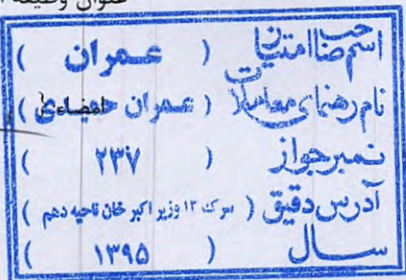 عنوان وظیفه
اسم صاحب امتیاز ( عمران )
نام رهنمای معاملات ( عمران حمیدی )
امضاء
نمبر جواز ( ۲۳۷ )
آدرس دقیق ( سرک ۱۲ وزیر اکبر خان ناحیه دهم )
سال ( ۱۳۹۵ )